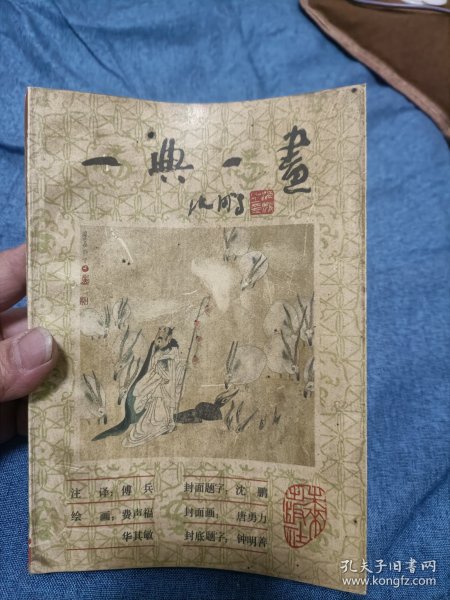 一典一畫
沈鹏
注 译：傅 兵 封面题字：沈 鹏
绘 画：费声福 封面画：唐勇力
华其敏 封底题字：钟明善
孔夫子旧书网
www.kongfz.com